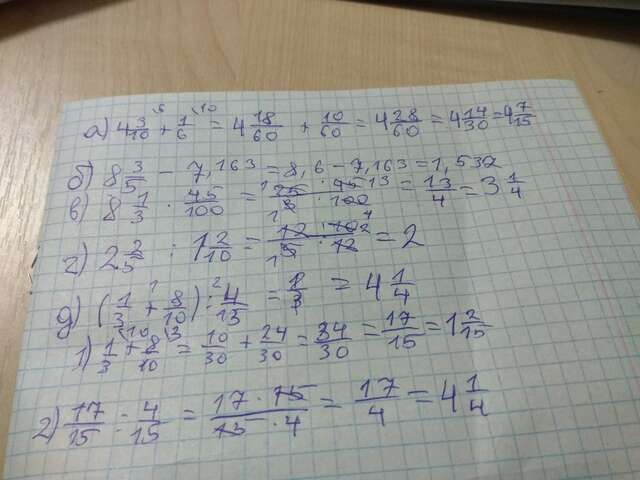 а) 4 3/10 + 1/6 = 4 18/60 + 10/60 = 4 28/60 = 4 14/30 = 4 7/15
б) 8 3/5 − 7,163 = 8,6 − 7,163 = 1,532
в) 8 1/3 · 45/100 = 25 · 45 / 3 · 100 = 13/4 = 3 1/4
г) 2 2/5 : 1 2/10 = 12 · 10 / 5 · 12 = 2
д) (1/3 + 8/10) : 4/15 = = 4 1/4
1) 1/3 + 8/10 = 10/30 + 24/30 = 34/30 = 17/15 = 1 2/15
2) 17/15 : 4/15 = 17 · 15 / 15 · 4 = 17/4 = 4 1/4